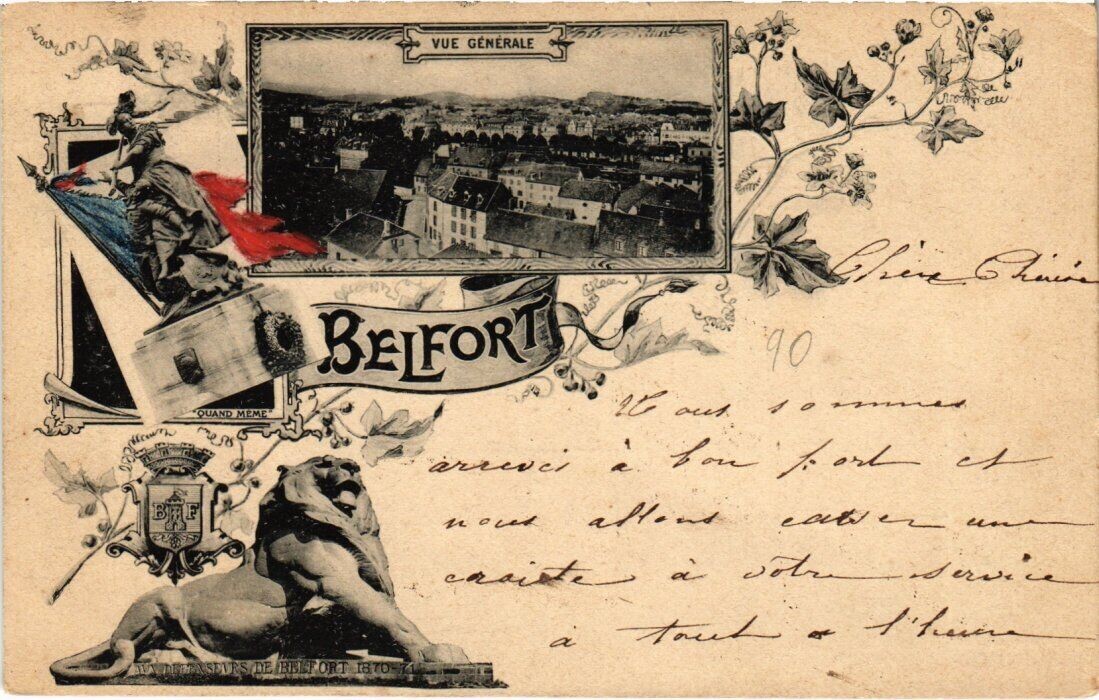 VUE GÉNÉRALE
BELFORT
"QUAND MÊME"
B F
AUX DÉFENSEURS DE BELFORT 1870-71
Chère
90
Nous sommes
arrivés à bon port et
nous allons casser une
croûte à votre service
à tout a l'heure